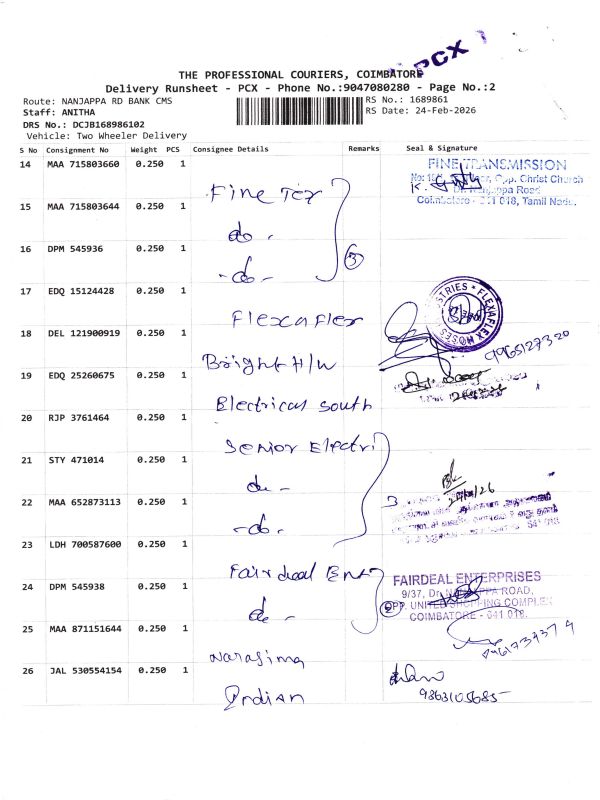 PCX
THE PROFESSIONAL COURIERS, COIMBATORE
Delivery Runsheet - PCX - Phone No.:9047080280 - Page No.:2
Route: NANJAPPA RD BANK CMS
RS No.: 1689861
Staff: ANITHA
RS Date: 24-Feb-2026
DRS No.: DCJB168986102
Vehicle: Two Wheeler Delivery
S No Consignment No Weight PCS Consignee Details Remarks Seal & Signature
14 MAA 715803660 0.250 1 Fine Ter
FINE TRANSMISSION
Opp. Christ Church
Dr. Nanjappa Road
Coimbatore - 641 018, Tamil Nadu.
15 MAA 715803644 0.250 1 do -
16 DPM 545936 0.250 1 - do - 3
17 EDQ 15124428 0.250 1 Flexaflex
FLEXAFLEX HOSES
18 DEL 121900919 0.250 1 Bright H/W
9965127320
19 EDQ 25260675 0.250 1 Electrical South
20 RJP 3761464 0.250 1 Senior Electri
21 STY 471014 0.250 1 do -
22 MAA 652873113 0.250 1 - do - 3
23 LDH 700587600 0.250 1 Fairdeal Ent
24 DPM 545938 0.250 1 do - 2
FAIRDEAL ENTERPRISES
9/37, Dr. NANJAPPA ROAD,
OPP. UNITED SHOPPING COMPLEX
COIMBATORE - 641 018.
25 MAA 871151644 0.250 1 Narasima
26 JAL 530554154 0.250 1 Indian
9363105685